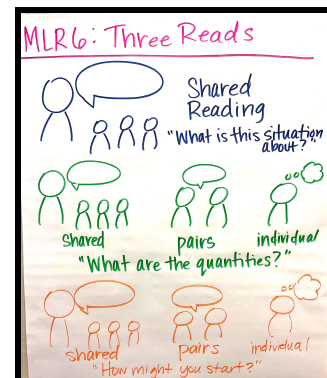 MLR6: Three Reads
Shared
Reading
"What is this situation
about?"
shared pairs individual
"What are the quantities?"
shared pairs individual
"How might you start?"